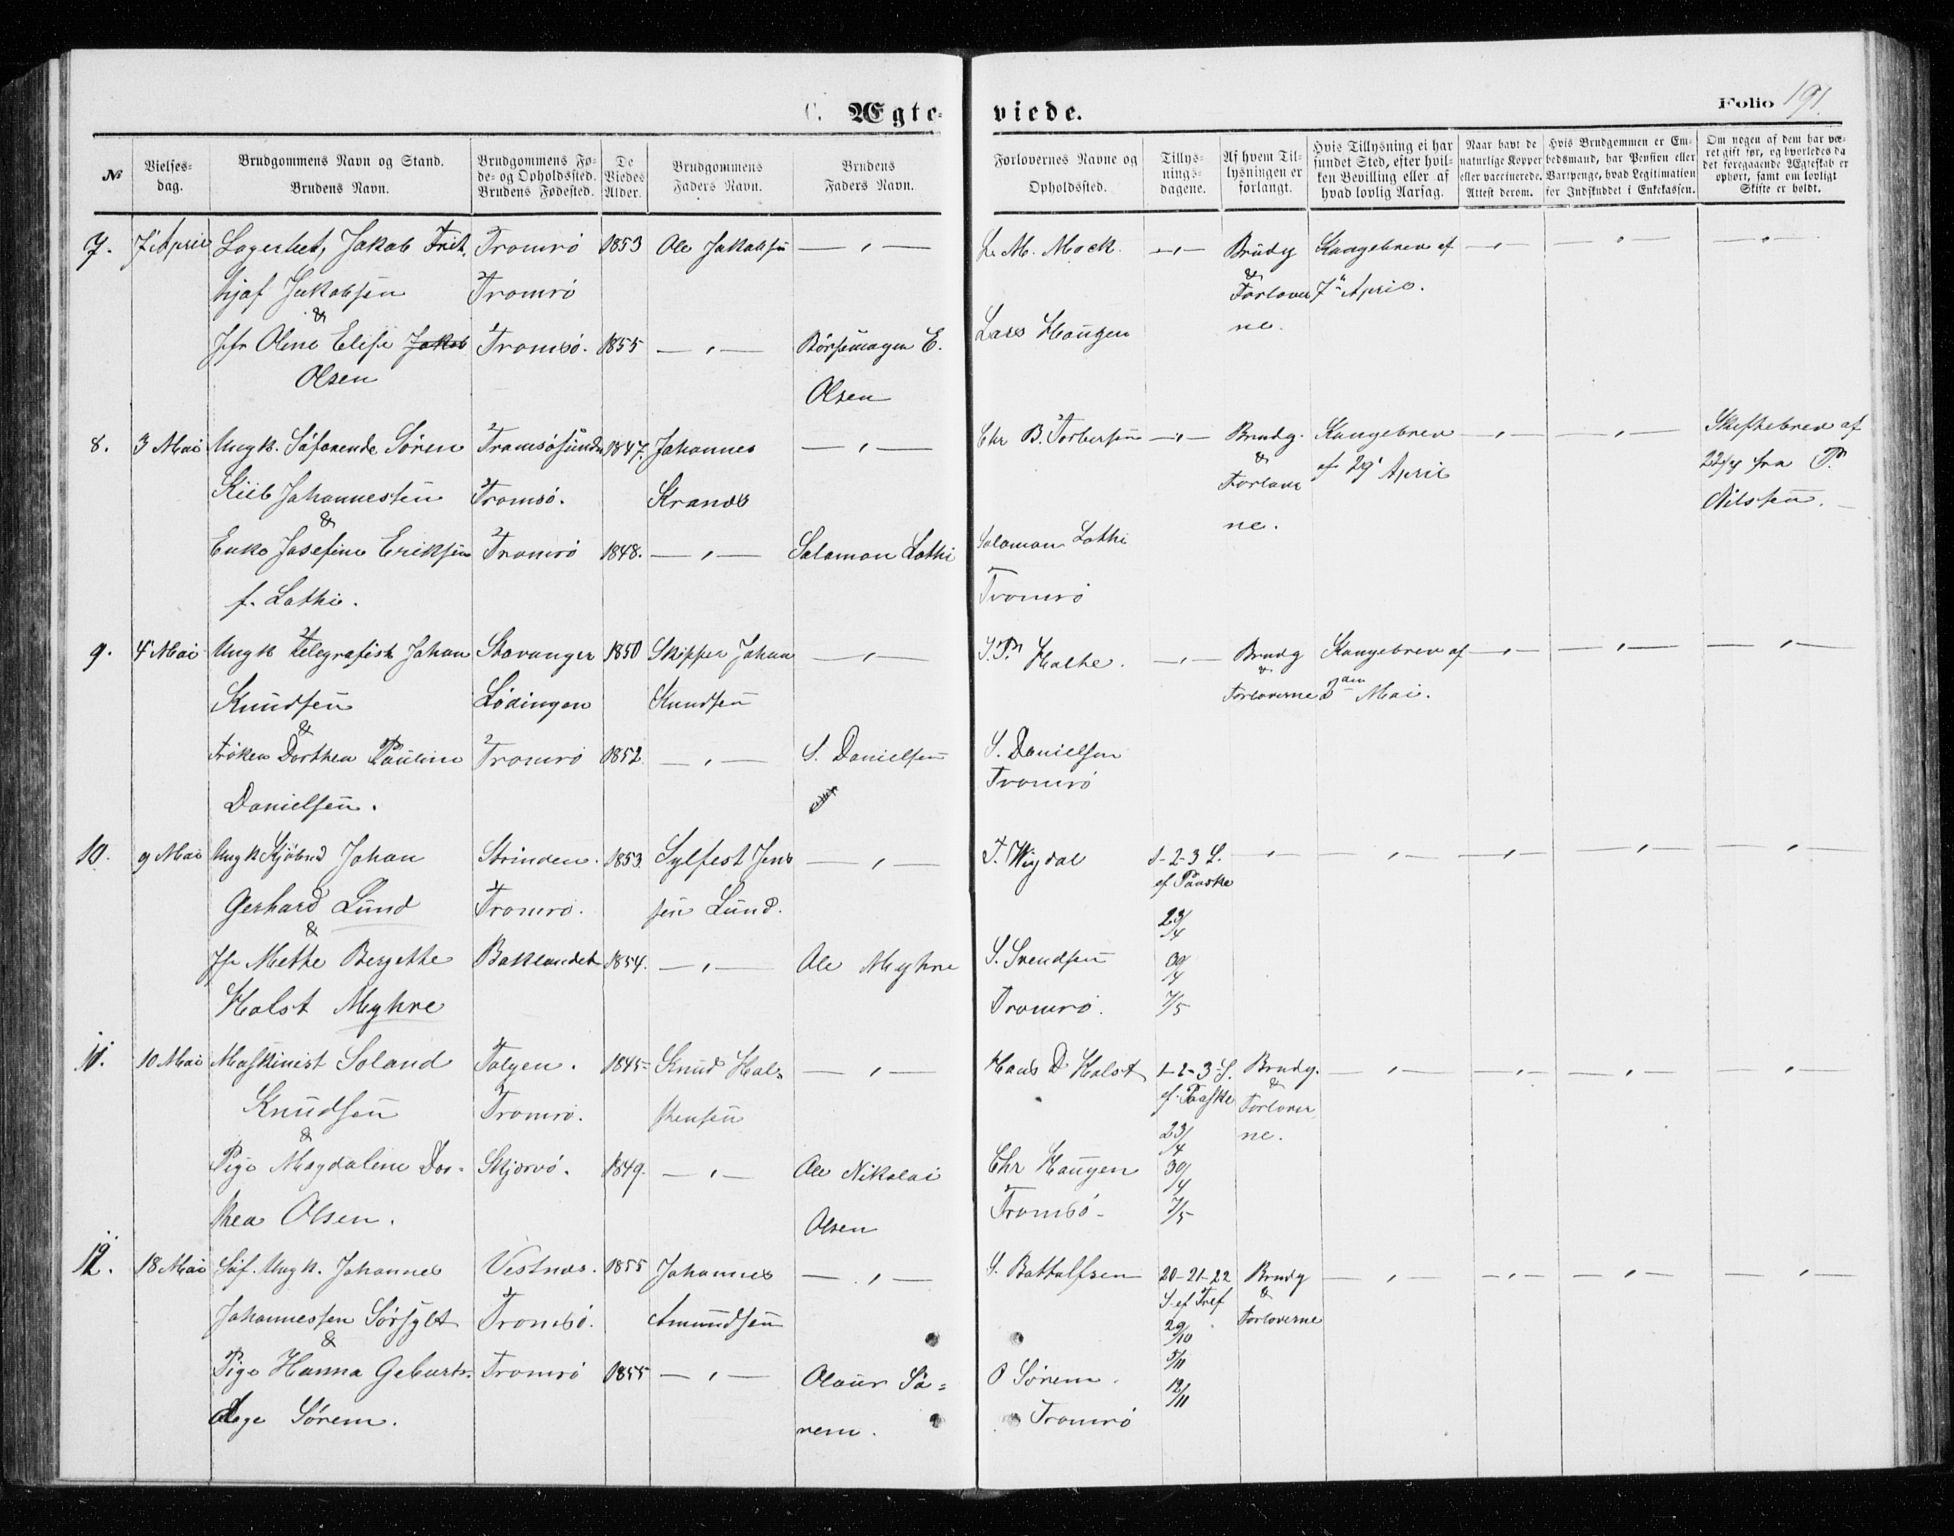 C. Ægte-
viede.
Folio 191.
№
Vielses-
dag.
Brudgommens Navn og Stand.
Brudens Navn.
Brudgommens Fø-
de- og Opholdssted.
Brudens Fødested.
De
Viedes
Alder.
Brudgommens
Faders Navn.
Brudens
Faders Navn.
Forlovernes Navne og
Opholdssted.
Tillys-
nings-
dagene.
Af hvem Til-
lysningen er
forlangt.
Hvis Tillysning ei har
fundet Sted, efter hvil-
ken Bevilling eller af
hvad lovlig Aarsag.
Naar havt de
naturlige Kopper
eller vaccinerede.
Attest derom.
Hvis Brudgommen er Em-
bedsmand, har Pension eller
Vartpenge, hvad Legitimation
for Indskuddet i Enkekassen.
Om nogen af dem har væ-
ret gift før, og hvorledes da
det foregaaende Ægteskab er
ophørt, samt om lovligt
Skifte er holdt.
7. 7 April Jakob Frit. Tromsø 1853 Ole Jakobsen — " — L. M. Mack. — " — Brudg Kongebrev af — " — — " — — " —
hjof Jakobsen Tromsø & Forlover 7" April.
&
Jfr Oline Elise Jakob Tromsø. 1855 — " — E. Lars Haugen ne.
Olsen Olsen
8. 3 Mai Ungk. Søfarende Søren Tromsøsundet 1847. Johannes — " — Chr B. Torbersen — " — Brudg. Kongebrev — " — — " — Skiftebrev af
Johannessen Tromsø. Strands & Forlover af 29' April 22/4 fra
& Nilssen.
Enke Josefine Eriksen Tromsø 1848. — " — Salamon Lathi Salamon Lathi ne.
f. Lathi. Tromsø
9. 4 Mai Ungk Telegrafist Johan Stavanger 1850 Skipper Johan — " — Holthe. — " — Brudg Kongebrev af — " — — " — — " —
Knudsen Lødingen Knudsen & Forloverne Mai.
&
Frøken Dorthea Pauline Tromsø 1852. — " — S. Danielsen S. Danielsen
Danielsen. Tromsø
10. 9 Mai Ungk Johan Strinden. 1853. Sylfest Jens — " — Wigdal 1-2-3 S. — " — — " — — " — — " — — " —
ef Paaske
Gerhard Lund Tromsø. sen Lund. 23/4
&
Jfr Methe Bergithe Baklandet 1854. — " — Ole Myhre S. Svendsen 30/4
Holst Myhre Tromsø. 7/5
11. 10 Mai Maskinist Soland Tolgen. 1845 Knud Hal- — " — Hans D Holst 1-2-3 S. Brudg. — " — — " — — " — — " —
Knudsen Tromsø. stensen ef. Paaske & Forlover
& 23/4 ne.
Pige Magdalina Dor- Skjervø. 1849. — " — Ole Nikolai Chr Haugen 30/4
thea Olsen. Olsen Tromsø. 7/5
12. 18 Mai Søf. Ungk. Johannes Vestnes. 1855 Johannes — " — Bottolfsen 20-21-22 Brudg — " — — " — — " — — " —
Johannessen Sørsylt Tromsø. Amundsen S. ef Tref & Forloverne
& 29/10
5/11
Pige Hanna Geburts- Tromsø 1855 — " — Olaus Sø- O Sørem. 12/11
dage Sørem. rem. Tromsø